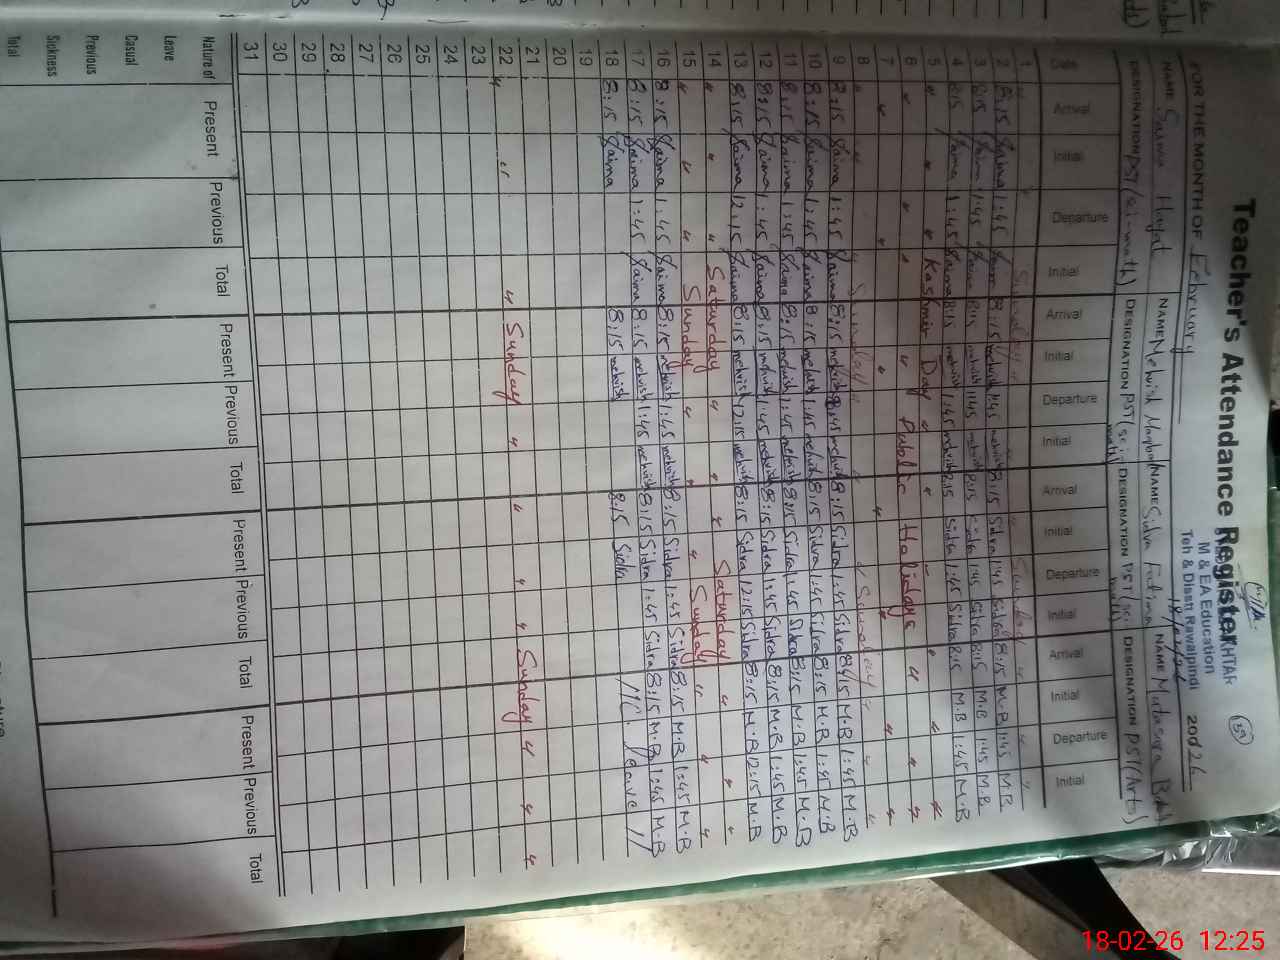 Teacher's Attendance Register
M & EA Education
Teh & Distt Rawalpindi
FOR THE MONTH OF February 2026
NAME Saima Hayat NAME Mehvish Maqbool NAME Sidra Fatima NAME
DESIGNATION PST(sci-math) DESIGNATION PST(sci- DESIGNATION PST(sci- DESIGNATION PST(Arts)
Date Arrival Initial Departure Initial Arrival Initial Departure Initial Arrival Initial Departure Initial Arrival Initial Departure Initial
1 " " Sunday " Sunday " "
2 8:15 Saima 1:45 Saima 8:15 mehvish 1:45 mehvish 8:15 Sidra 1:45 Sidra 8:15 M.B 1:45 M.B
3 8:15 Saima 1:45 Saima 8:15 mehvish 1:45 mehvish 8:15 Sidra 1:45 Sidra 8:15 M.B 1:45 M.B
4 8:15 Saima 1:45 Saima 8:15 mehvish 1:45 mehvish 8:15 Sidra 1:45 Sidra 8:15 M.B 1:45 M.B
5 " " " Kashmir Day " " " " "
6 " " " " Public Holidays " " "
7 " " " " " " "
8 " " Sunday " Sunday " " "
9 8:15 Saima 1:45 Saima 8:15 mehvish 1:45 mehvish 8:15 Sidra 1:45 Sidra 8:15 M.B 1:45 M.B
10 8:15 Saima 1:45 Saima 8:15 mehvish 1:45 mehvish 8:15 Sidra 1:45 Sidra 8:15 M.B 1:45 M.B
11 8:15 Saima 1:45 Saima 8:15 mehvish 1:45 mehvish 8:15 Sidra 1:45 Sidra 8:15 M.B 1:45 M.B
12 8:15 Saima 1:45 Saima 8:15 mehvish 1:45 mehvish 8:15 Sidra 1:45 Sidra 8:15 M.B 1:45 M.B
13 8:15 Saima 12:15 Saima 8:15 mehvish 12:15 mehvish 8:15 Sidra 12:15 Sidra 8:15 M.B 12:15 M.B
14 " " " Saturday " " " Saturday " " "
15 " " " Sunday " " " Sunday " " "
16 8:15 Saima 1:45 Saima 8:15 mehvish 1:45 mehvish 8:15 Sidra 1:45 Sidra 8:15 M.B 1:45 M.B
17 8:15 Saima 1:45 Saima 8:15 mehvish 1:45 mehvish 8:15 Sidra 1:45 Sidra 8:15 M.B 1:45 M.B
18 8:15 Saima 8:15 mehvish 8:15 Sidra leave
19
20
21
22 " " " Sunday " " " " Sunday " " "
23
24
25
26
27
28
29
30
31
Nature of Present Previous Total Present Previous Total Present Previous Total Present Previous Total
Leave
Casual
Previous
Sickness
Total
18-02-26 12:25